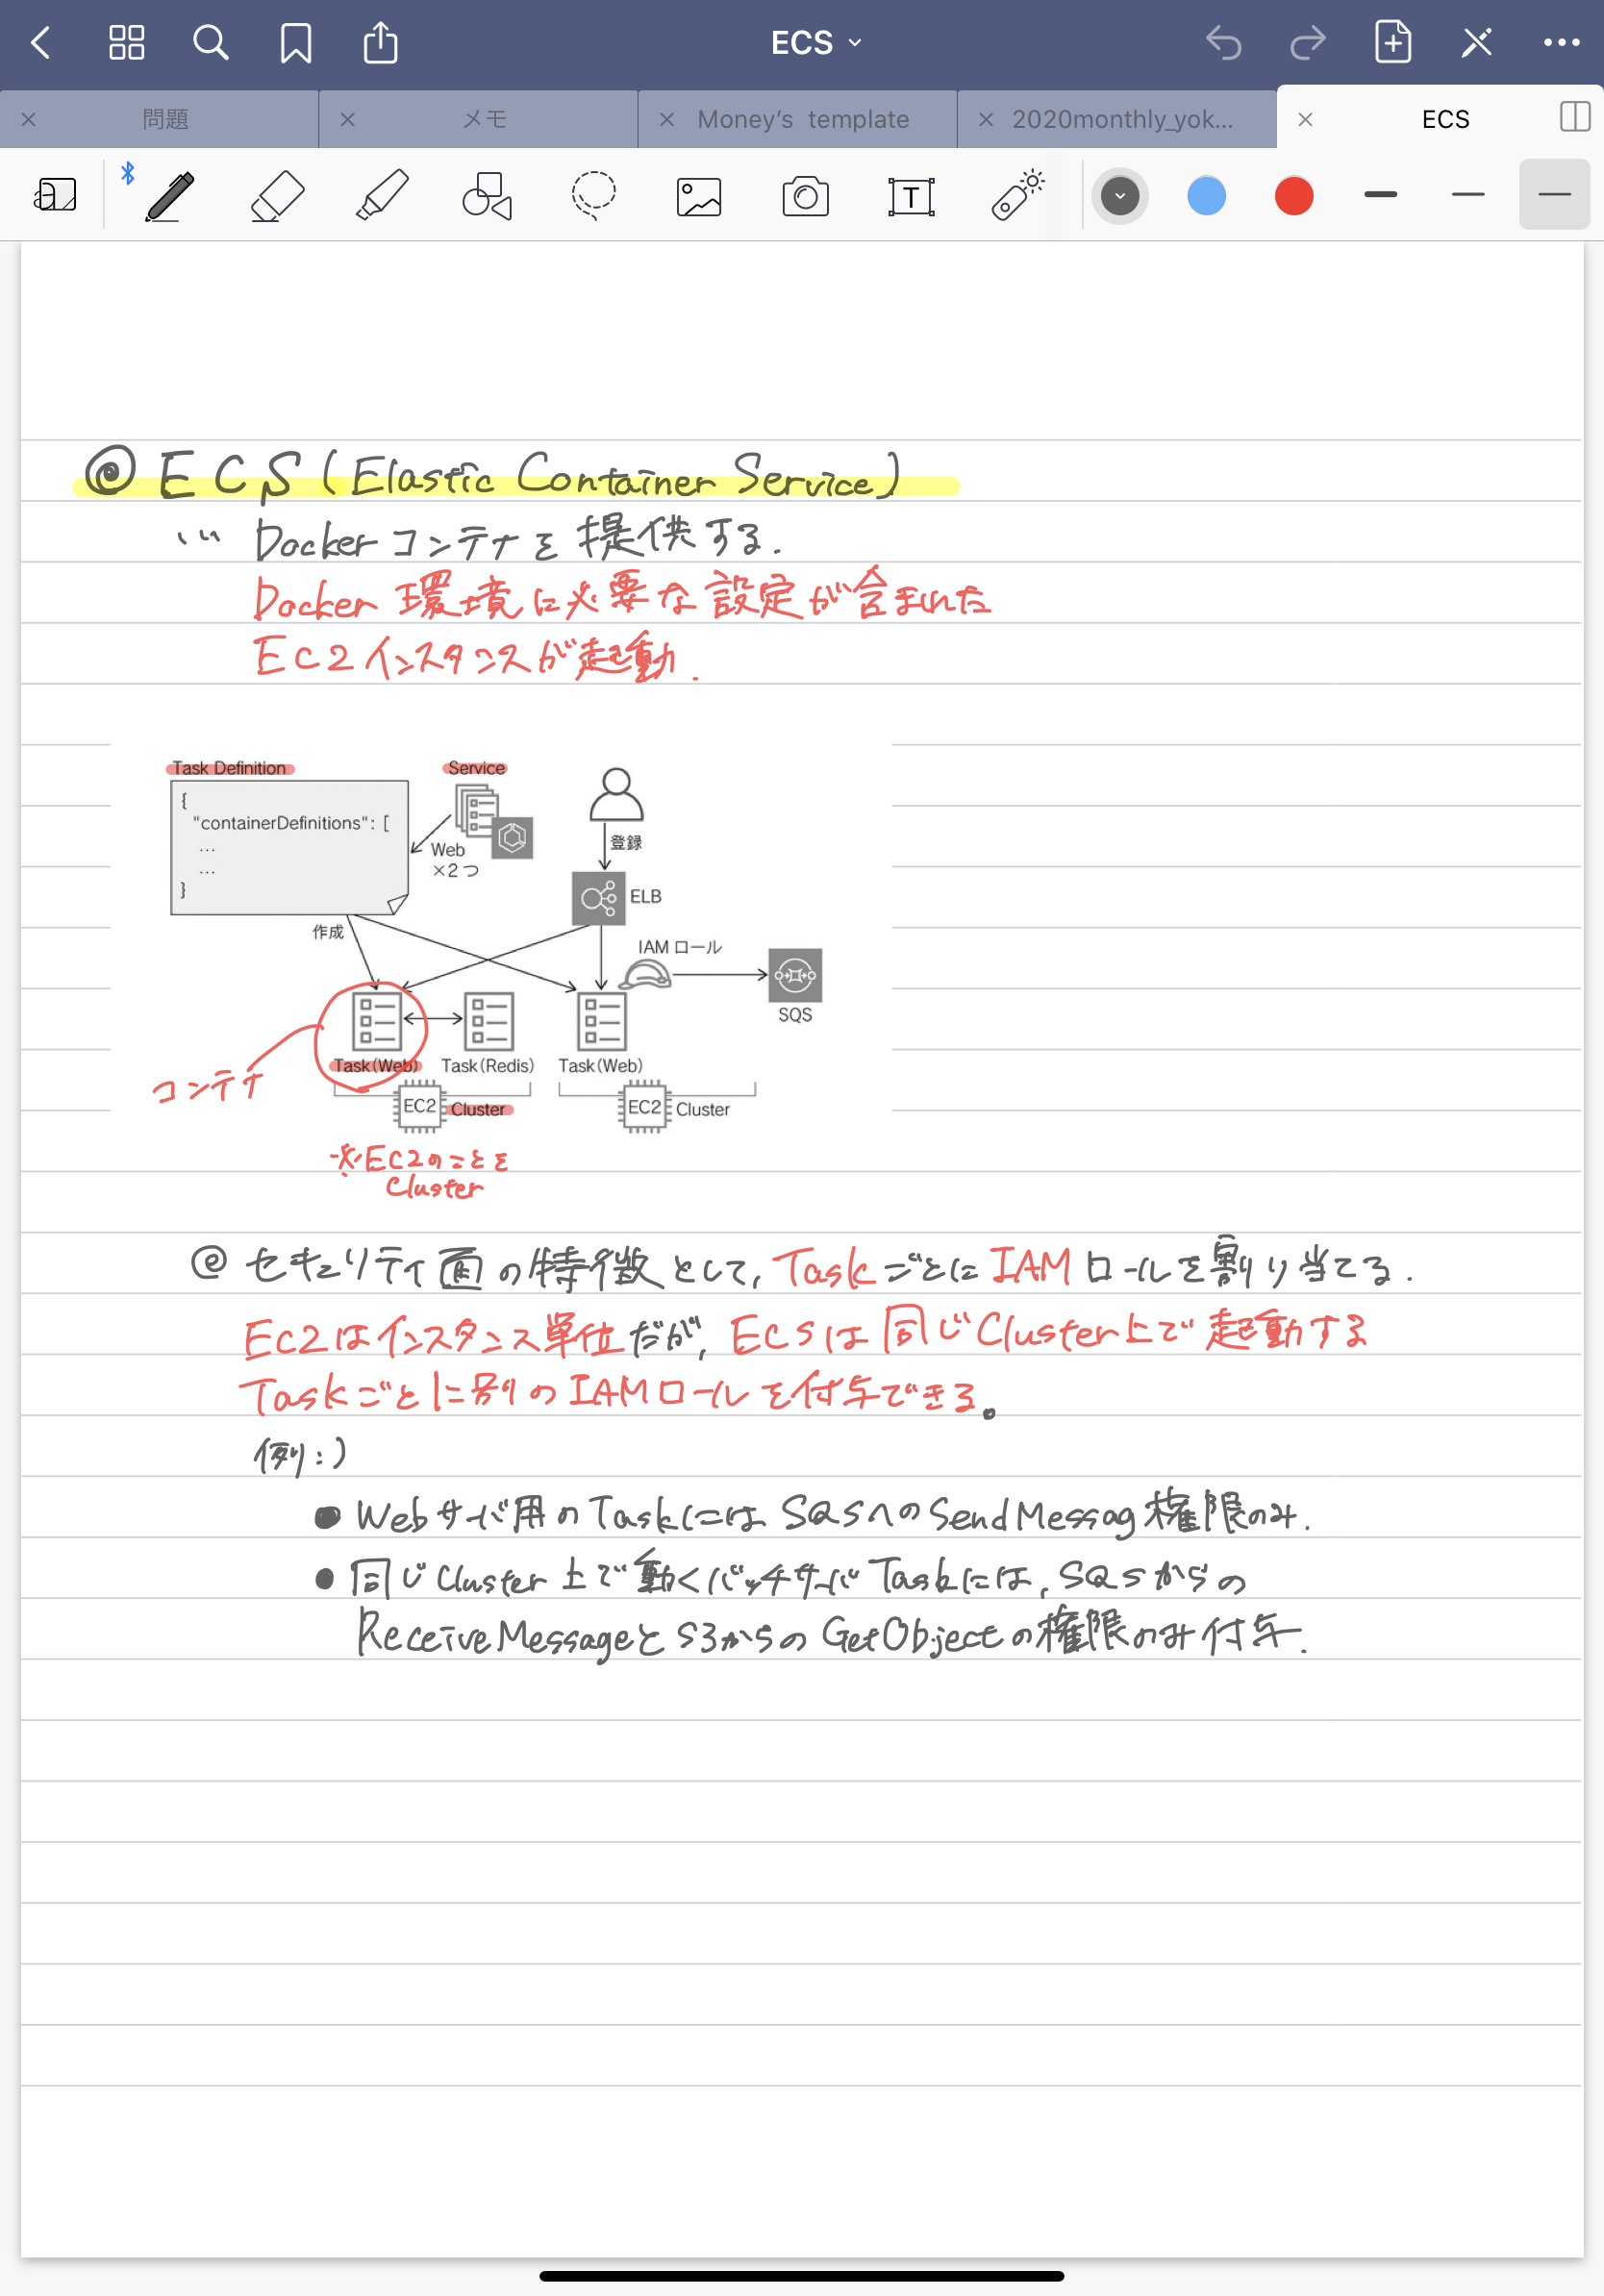 ECS
問題
メモ
Money's template
2020monthly_yok...
ECS
◎ ECS (Elastic Container Service)
… Dockerコンテナを提供する.
Docker環境に必要な設定が含まれた
EC2インスタンスが起動.
Task Definition
Service
{
"containerDefinitions": [
...
...
}
Web
×2つ
登録
ELB
作成
IAM ロール
SQS
Task(Web)
Task(Redis)
Task(Web)
コンテナ
EC2
Cluster
EC2
Cluster
※EC2のことを
Cluster
◎ セキュリティ面の特徴として, TaskごとにIAMロールを割り当てる.
EC2はインスタンス単位だが, ECSは同じCluster上で起動する
Taskごとに別のIAMロールを付与できる。
例:)
● Webサーバ用のTaskにはSQSへのSendMessag権限のみ.
● 同じCluster上で動くバッチサーバTaskには, SQSからの
ReceiveMessageとS3からのGetObjectの権限のみ付与.